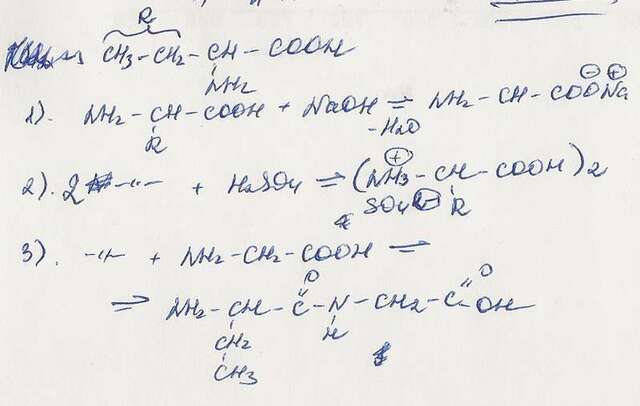 R
CH3-CH2-CH-COOH
NH2
1). NH2-CH-COOH + NaOH ⇌ NH2-CH-COO⊖Na⊕
R
-H2O
2). 2 -"- + H2SO4 ⇌ (NH3⊕-CH-COOH)2
SO4⊖ R
3). -"- + NH2-CH2-COOH ⇌
⇌ NH2-CH-C(=O)-N-CH2-C(=O)-OH
CH2 H
CH3